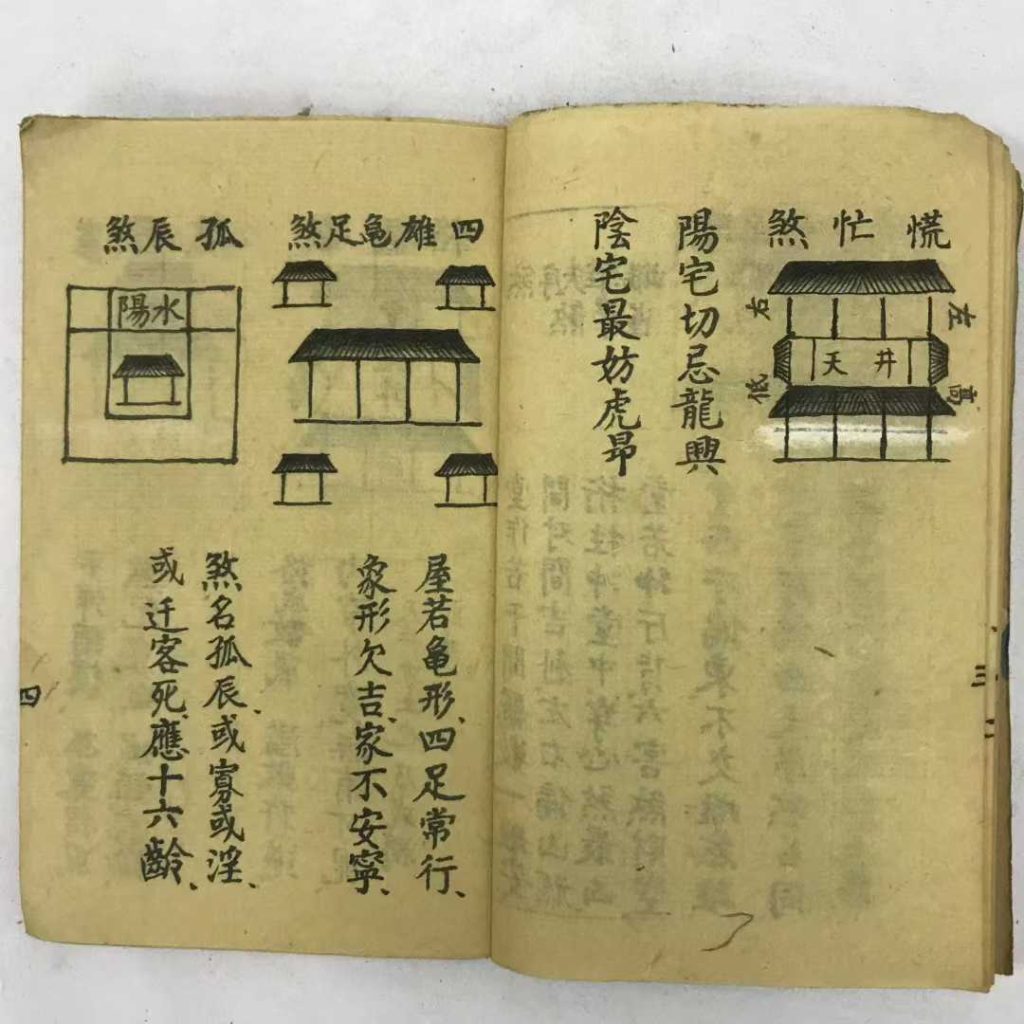 慌忙煞
左
右
高
低
天井
陽宅切忌龍興
陰宅最妨虎昂
三
四雄龟足煞
屋若龟形、四足常行、
象形欠吉、家不安寧、
孤辰煞
水陽
煞名孤辰、或寡或淫、
或迁客死、應十六齡、
四